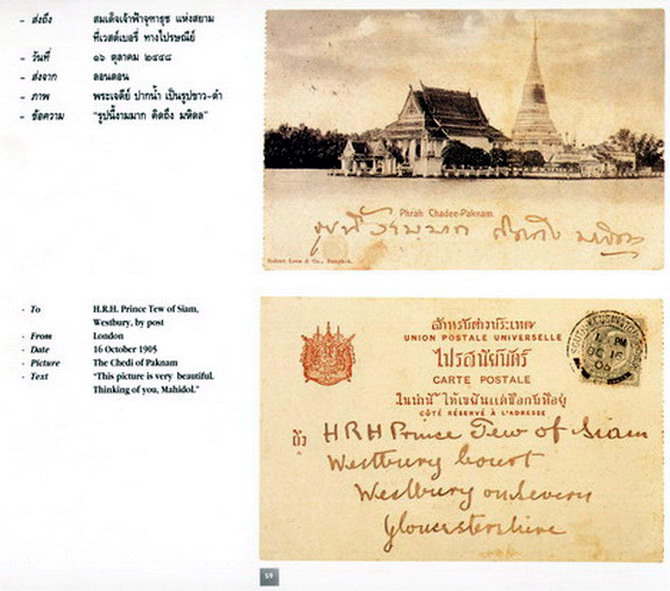 - ส่งถึง สมเด็จเจ้าฟ้าจุฑาธุช แห่งสยาม
ที่เวสต์เบอรี่ ทางไปรษณีย์
- วันที่ ๑๖ ตุลาคม ๒๔๔๘
- ส่งจาก ลอนดอน
- ภาพ พระเจดีย์ ปากน้ำ เป็นรูปขาว-ดำ
- ข้อความ "รูปนี้งามมาก คิดถึง มหิดล"
Phrah Chadee-Paknam.
รูปนี้งามมาก คิดถึง มหิดล
Robert Lenz & Co., Bangkok.
- To H.R.H. Prince Tew of Siam,
Westbury, by post
- From London
- Date 16 October 1905
- Picture The Chedi of Paknam
- Text "This picture is very beautiful.
Thinking of you, Mahidol."
สำหรับต่างประเทศ
UNION POSTALE UNIVERSELLE
ไปรสนียบัตร์
CARTE POSTALE
ในน่านี้ ให้เขียนแต่ชื่อกับที่อยู่
CÔTÉ RÉSERVÉ À L'ADRESSE
ถึง HRH Prince Tew of Siam
Westbury Court
Westbury on Severn
Gloucestershire
1 PM
OC 16
05
59